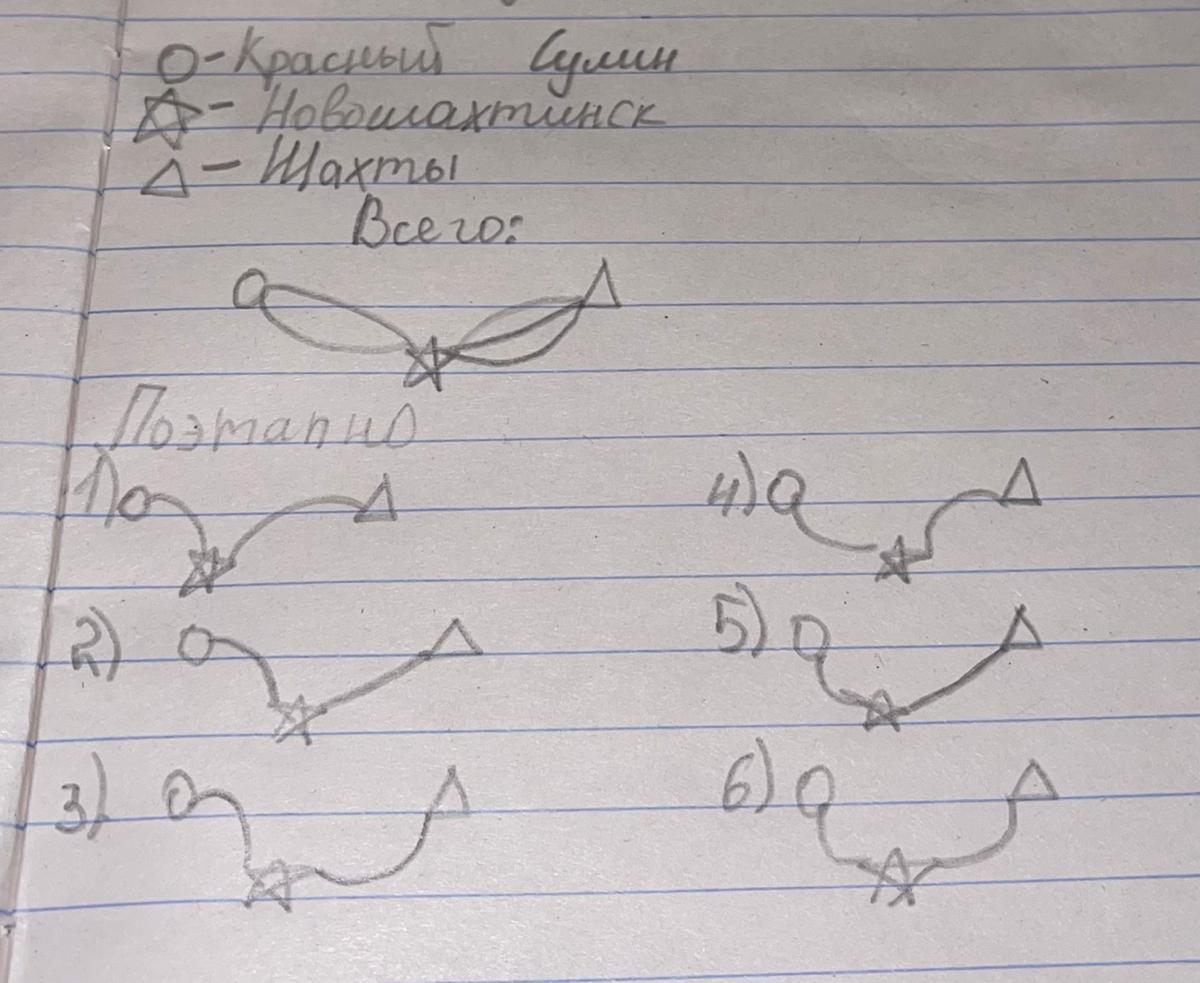 О-Красный Сулин
☆- Новошахтинск
△- Шахты
Всего:
Поэтапно
1)
4)
2)
5)
3)
6)